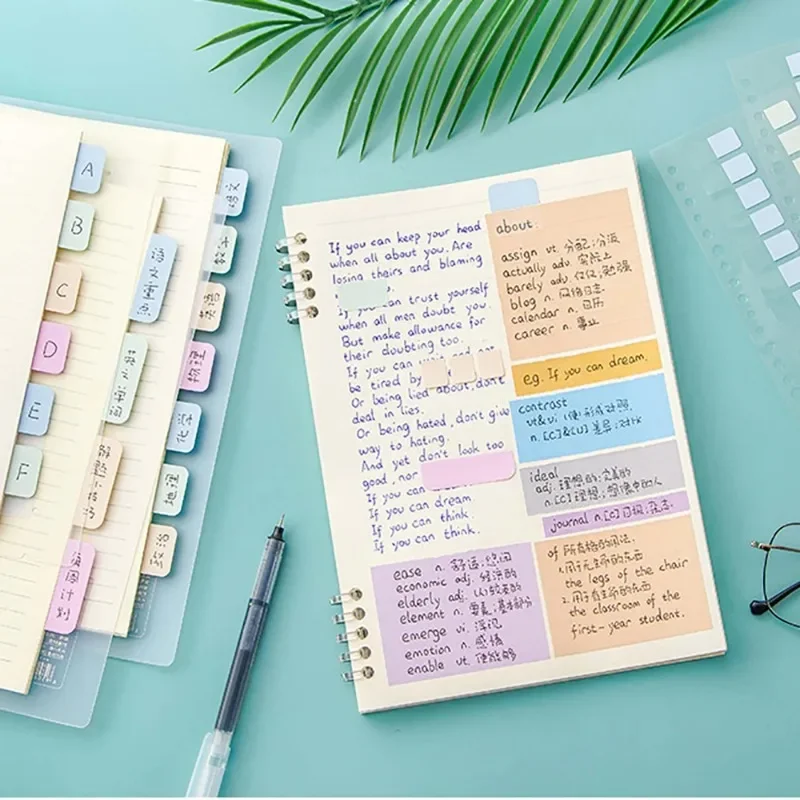 A
B
C
D
E
F
语文
数学
英语
物理
化学
地理
政治
语文重点
每周计划
If you can keep your head
when all about you. Are
losing theirs and blaming
If you can trust yourself
when all men doubt you.
But make allowance for
their doubting too.
If you can
be tired by
Or being lied about, don't
deal in lies.
Or being hated, don't give
way to hating.
And yet don't look too
good, nor
If you can
If you can dream
If you can think.
If you can think.
about:
assign vt. 分配;分派
actually adv. 实际上
barely adv. 仅仅;勉强
blog n. 网络日志
calendar n. 日历
career n. 事业
e.g. If you can dream.
contrast
vt&vi (使)形成对照
n. [C]&[U] 差异;对比
ideal
adj. 理想的;完美的
n. [C] 理想;想像中的人
journal n. [C] 日报;杂志.
ease n. 舒适;悠闲
economic adj. 经济的
elderly adj. (人)较老的
element n. 要素;基本部分
emerge vi. 浮现
emotion n. 感情
enable vt. 使能够
of 所有格的用法.
1.用于无生命的东西
the legs of the chair
2.用于有生命的东西
the classroom of the
first-year student.